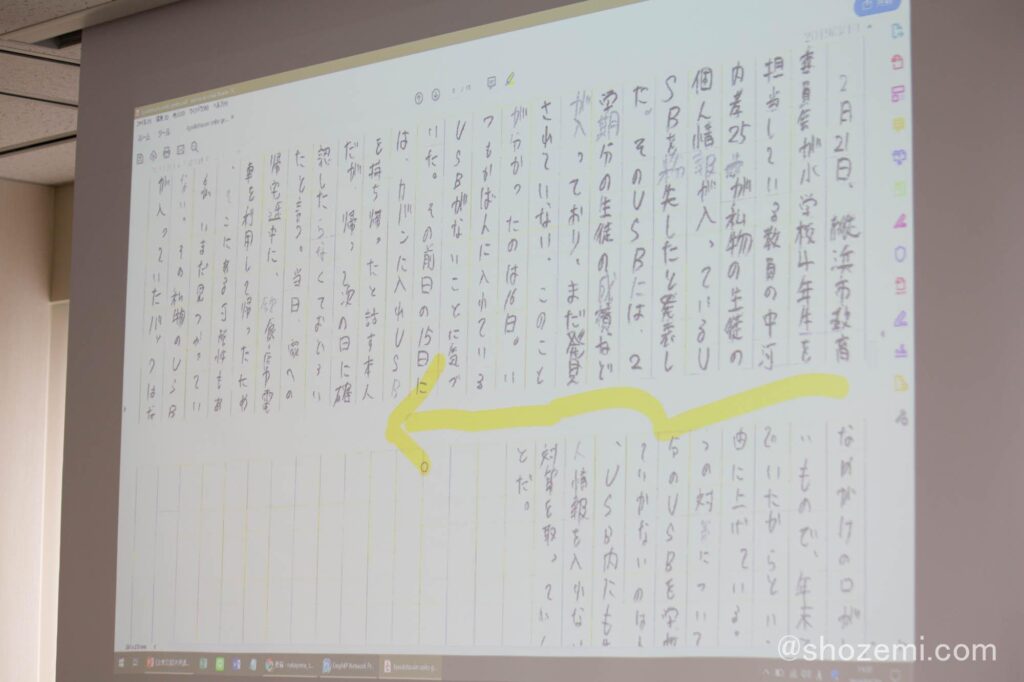 2月21日、横浜市教育
委員会が小学校4年生を
担当している教員の中河
内孝25歳が私物の生徒の
個人情報が入っているU
SBを紛失したと発表し
た。そのUSBには、2
学期分の生徒の成績など
が入っており、まだ発見
されていない。このこと
が分かったのは16日。い
つもかばんに入れている
USBがないことに気づ
いた。その前日の15日に
は、カバンに入れUSB
を持ち帰ったと話す本人
だが、帰って次の日に確
認したらなくておどろい
たと言う。当日、家への
帰宅途中に、飲食店や電
車を利用して帰ったため
、そこにある可能性もあ
るが、いまだ見つかってい
ない。その私物のUSB
が入っていたバッグはな
なめがけの口が
いもので、年末
ていたからとい
由に上げている。
つの対策について
らのUSBを学
ていかないのは
、USB内にも
人情報を入れない
対策を取ってい
とだ。
@shozemi.com